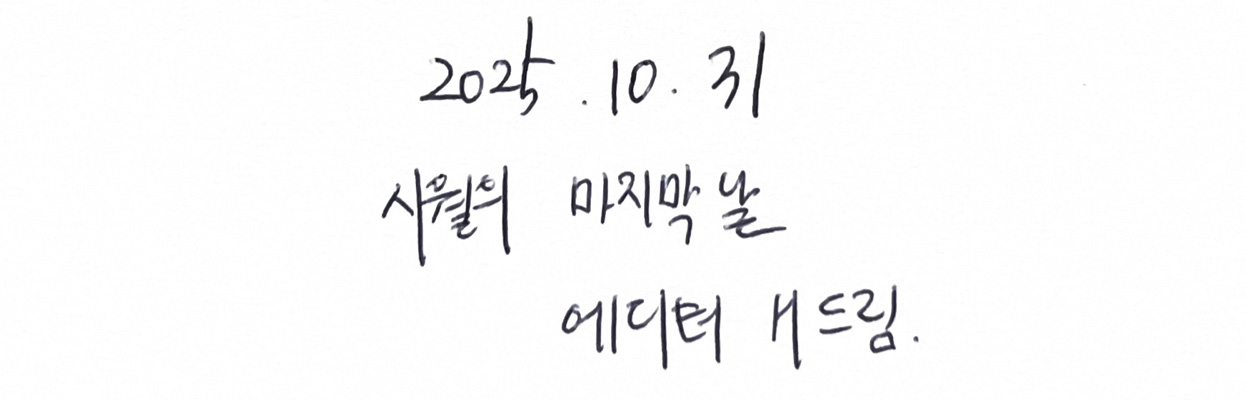 2025.10.31
시월의 마지막 날
에디터 H 드림.